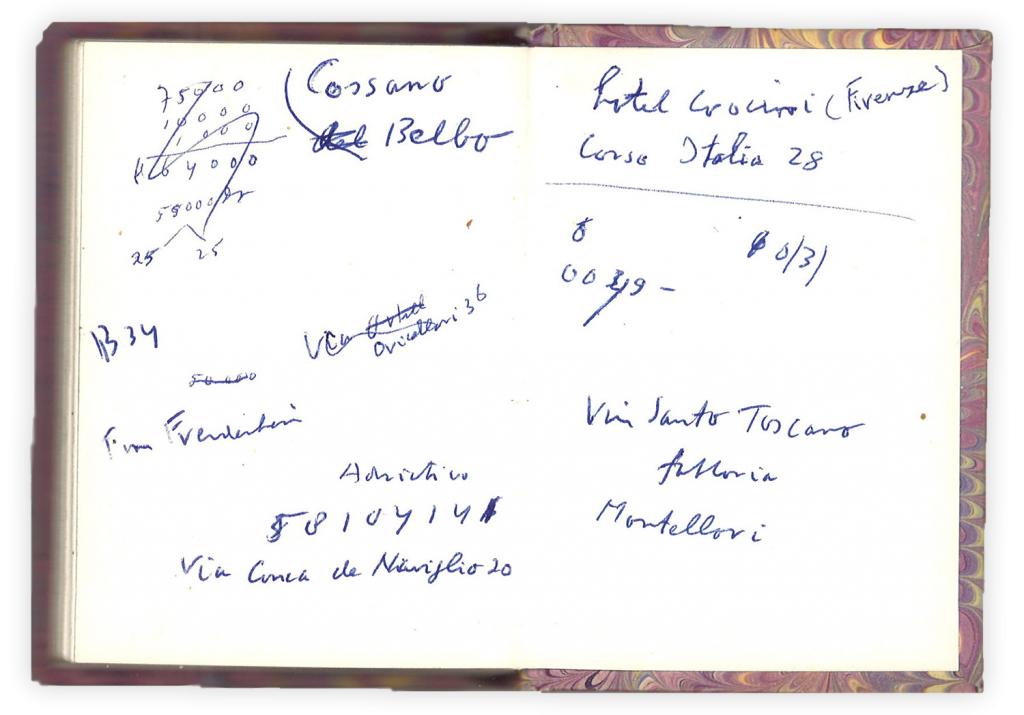 75000
10000
1000
58000
25 25
Cossano
del Belbo
B 34
Via Hotel
Oricellari 36
50.000
Adriatico
58104141
Via Conca de Naviglio 20
hotel Crocini (Firenze)
Corso Italia 28
0
0039 -
0/3)
Vin Santo Toscano
fattoria
Montellori